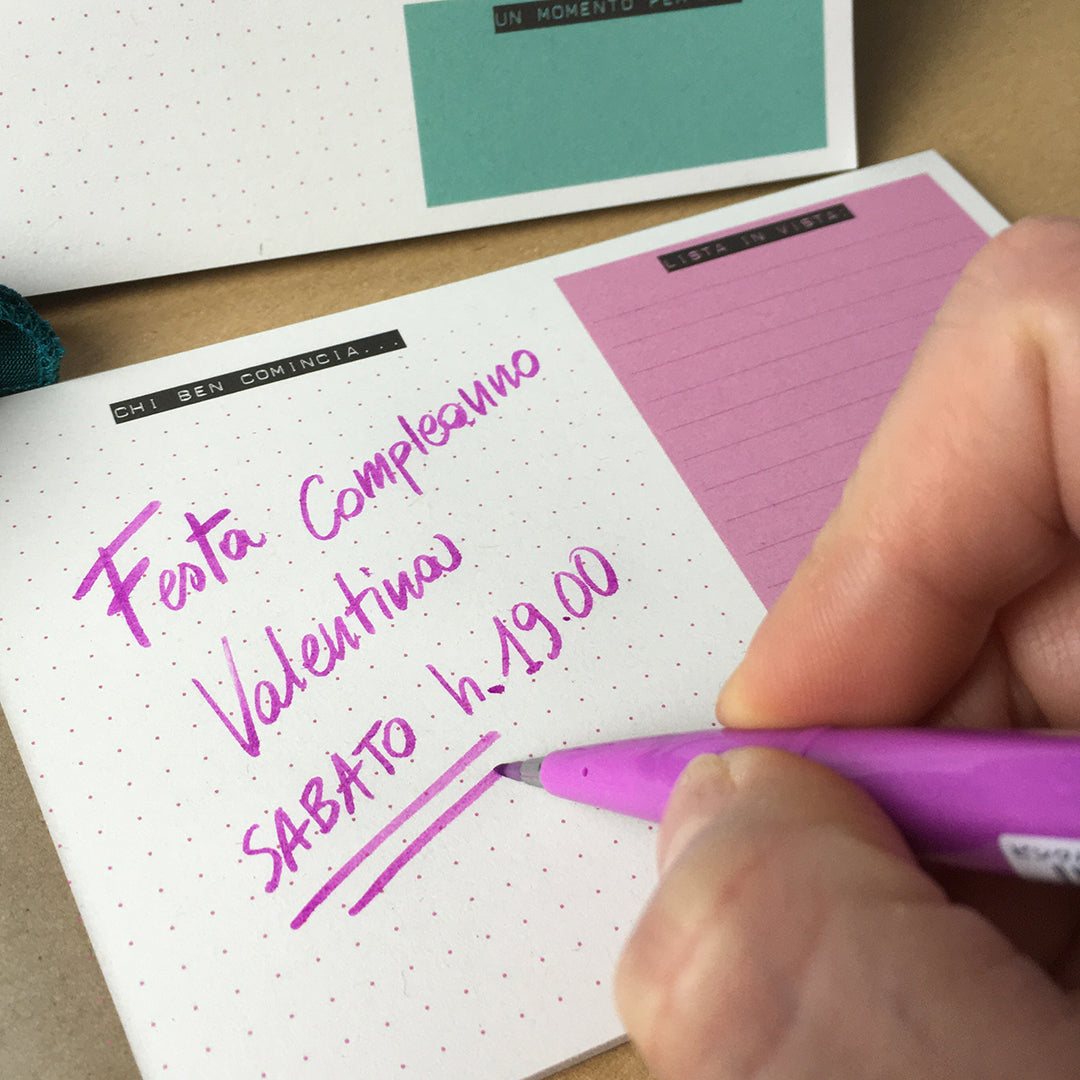 UN MOMENTO
LISTA IN VISTA:
CHI BEN COMINCIA...
Festa Compleanno
Valentina
SABATO h.19.00